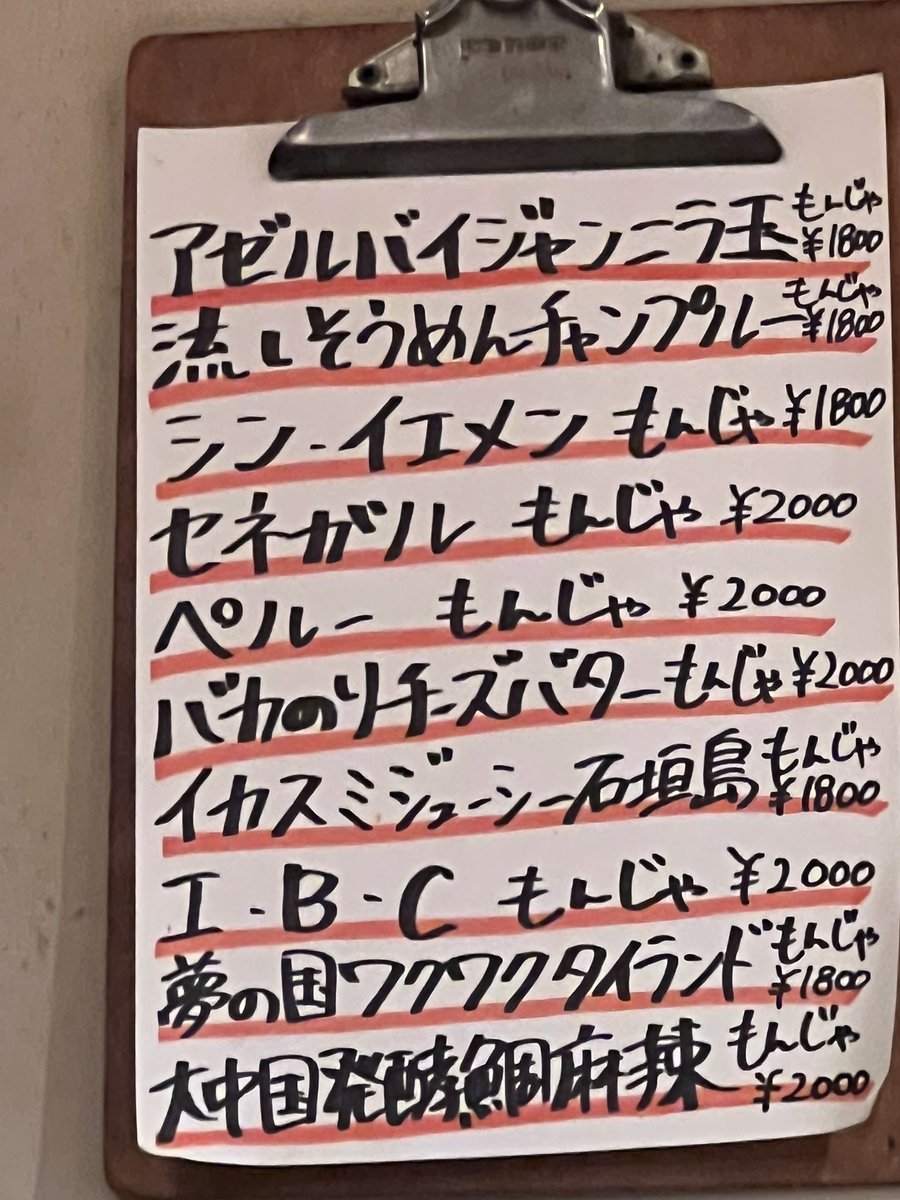 アゼルバイジャンニラ玉もんじゃ ¥1800
流しそうめんチャンプルーもんじゃ ¥1800
シン・イエメン もんじゃ ¥1800
セネガル もんじゃ ¥2000
ペルー もんじゃ ¥2000
バカのりチーズバターもんじゃ ¥2000
イカスミジューシー石垣島もんじゃ ¥1800
I・B・C もんじゃ ¥2000
夢の国ワクワクタイランドもんじゃ ¥1800
大中国発酵鯛麻辣もんじゃ ¥2000